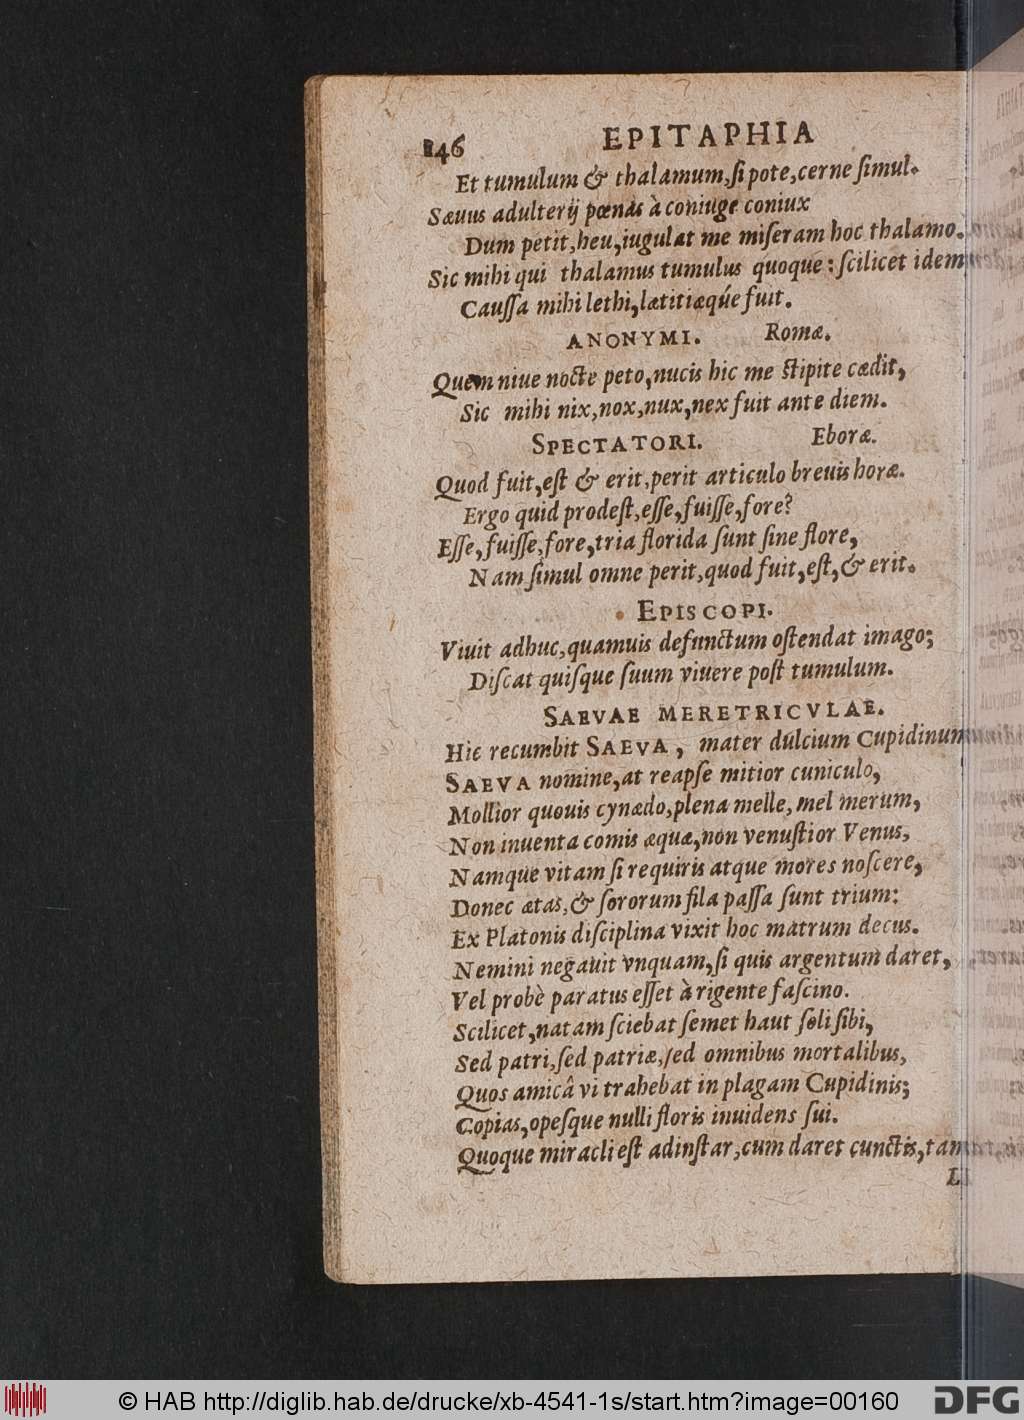 146 EPITAPHIA
Et tumulum & thalamum, ſi pote, cerne ſimul.
Sæuus adulterij pœnas à coniuge coniux
Dum petit, heu, iugulat me miſeram hoc thalamo.
Sic mihi qui thalamus tumulus quoque: ſcilicet idem
Cauſſa mihi lethi, lætitiæq́ue fuit.
ANONYMI. Romæ.
Quem niue nocte peto, nucis hic me ſtipite cædit,
Sic mihi nix, nox, nux, nex fuit ante diem.
SPECTATORI. Eboræ.
Quod fuit, eſt & erit, perit articulo breuis horæ.
Ergo quid prodeſt, eſſe, fuiſſe, fore?
Eſſe, fuiſſe, fore, tria florida ſunt ſine flore,
Nam ſimul omne perit, quod fuit, eſt, & erit.
EPISCOPI.
Viuit adhuc, quamuis defunctum oſtendat imago;
Diſcat quiſque ſuum viuere poſt tumulum.
SAEVAE MERETRICVLAE.
Hic recumbit SAEVA, mater dulcium Cupidinum
SAEVA nomine, at reapſe mitior cuniculo,
Mollior quouis cynædo, plena melle, mel merum,
Non inuenta comis æquæ, non venuſtior Venus,
Namque vitam ſi requiris atque mores noſcere,
Donec ætas, & ſororum fila paſſa ſunt trium:
Ex Platonis diſciplina vixit hoc matrum decus.
Nemini negauit vnquam, ſi quis argentum daret,
Vel probè paratus eſſet à rigente faſcino.
Scilicet, natam ſciebat ſemet haut ſoli ſibi,
Sed patri, ſed patriæ, ſed omnibus mortalibus,
Quos amicâ vi trahebat in plagam Cupidinis;
Copias, opeſque nulli floris inuidens ſui.
Quoque miracli eſt adinſtar, cum daret cunctis, tam
© HAB http://diglib.hab.de/drucke/xb-4541-1s/start.htm?image=00160 DFG